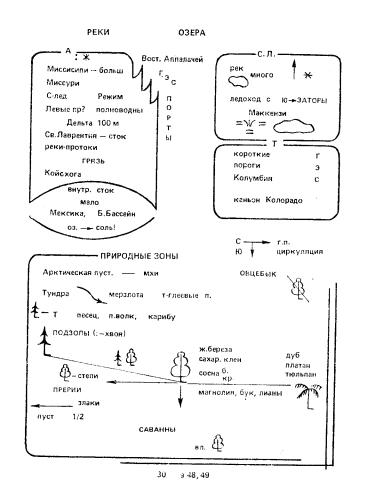 РЕКИ ОЗЕРА
А
: Ж
Миссисипи — больш
Миссури
С-лед Режим
Левые пр? полноводны
Дельта 100 м
Св.Лаврентия — сток
реки-протоки
ГРЯЗЬ
Койсхога
внутр. сток
мало
Мексика, Б.Бассейн
оз. → соль!
Вост. Аппалачей
ГЭС
ПОРТЫ
С.Л.
рек
много
ледоход с Ю→ЗАТОРЫ
Маккензи
Т
короткие Г
пороги Э
Колумбия С
каньон Колорадо
С → г.п.
Ю циркуляция
ПРИРОДНЫЕ ЗОНЫ
Арктическая пуст. — мхи
ОВЦЕБЫК
Тундра мерзлота т-глеевые п.
— Т песец, п.волк, карибу
ПОДЗОЛЫ (:—хвоя)
ж.береза
сахар. клен
сосна б.
кр.
дуб
платан
тюльпан
— степи
ПРЕРИИ
магнолия, бук, лианы
злаки
пуст 1/2
САВАННЫ
вл.
30 э 48, 49